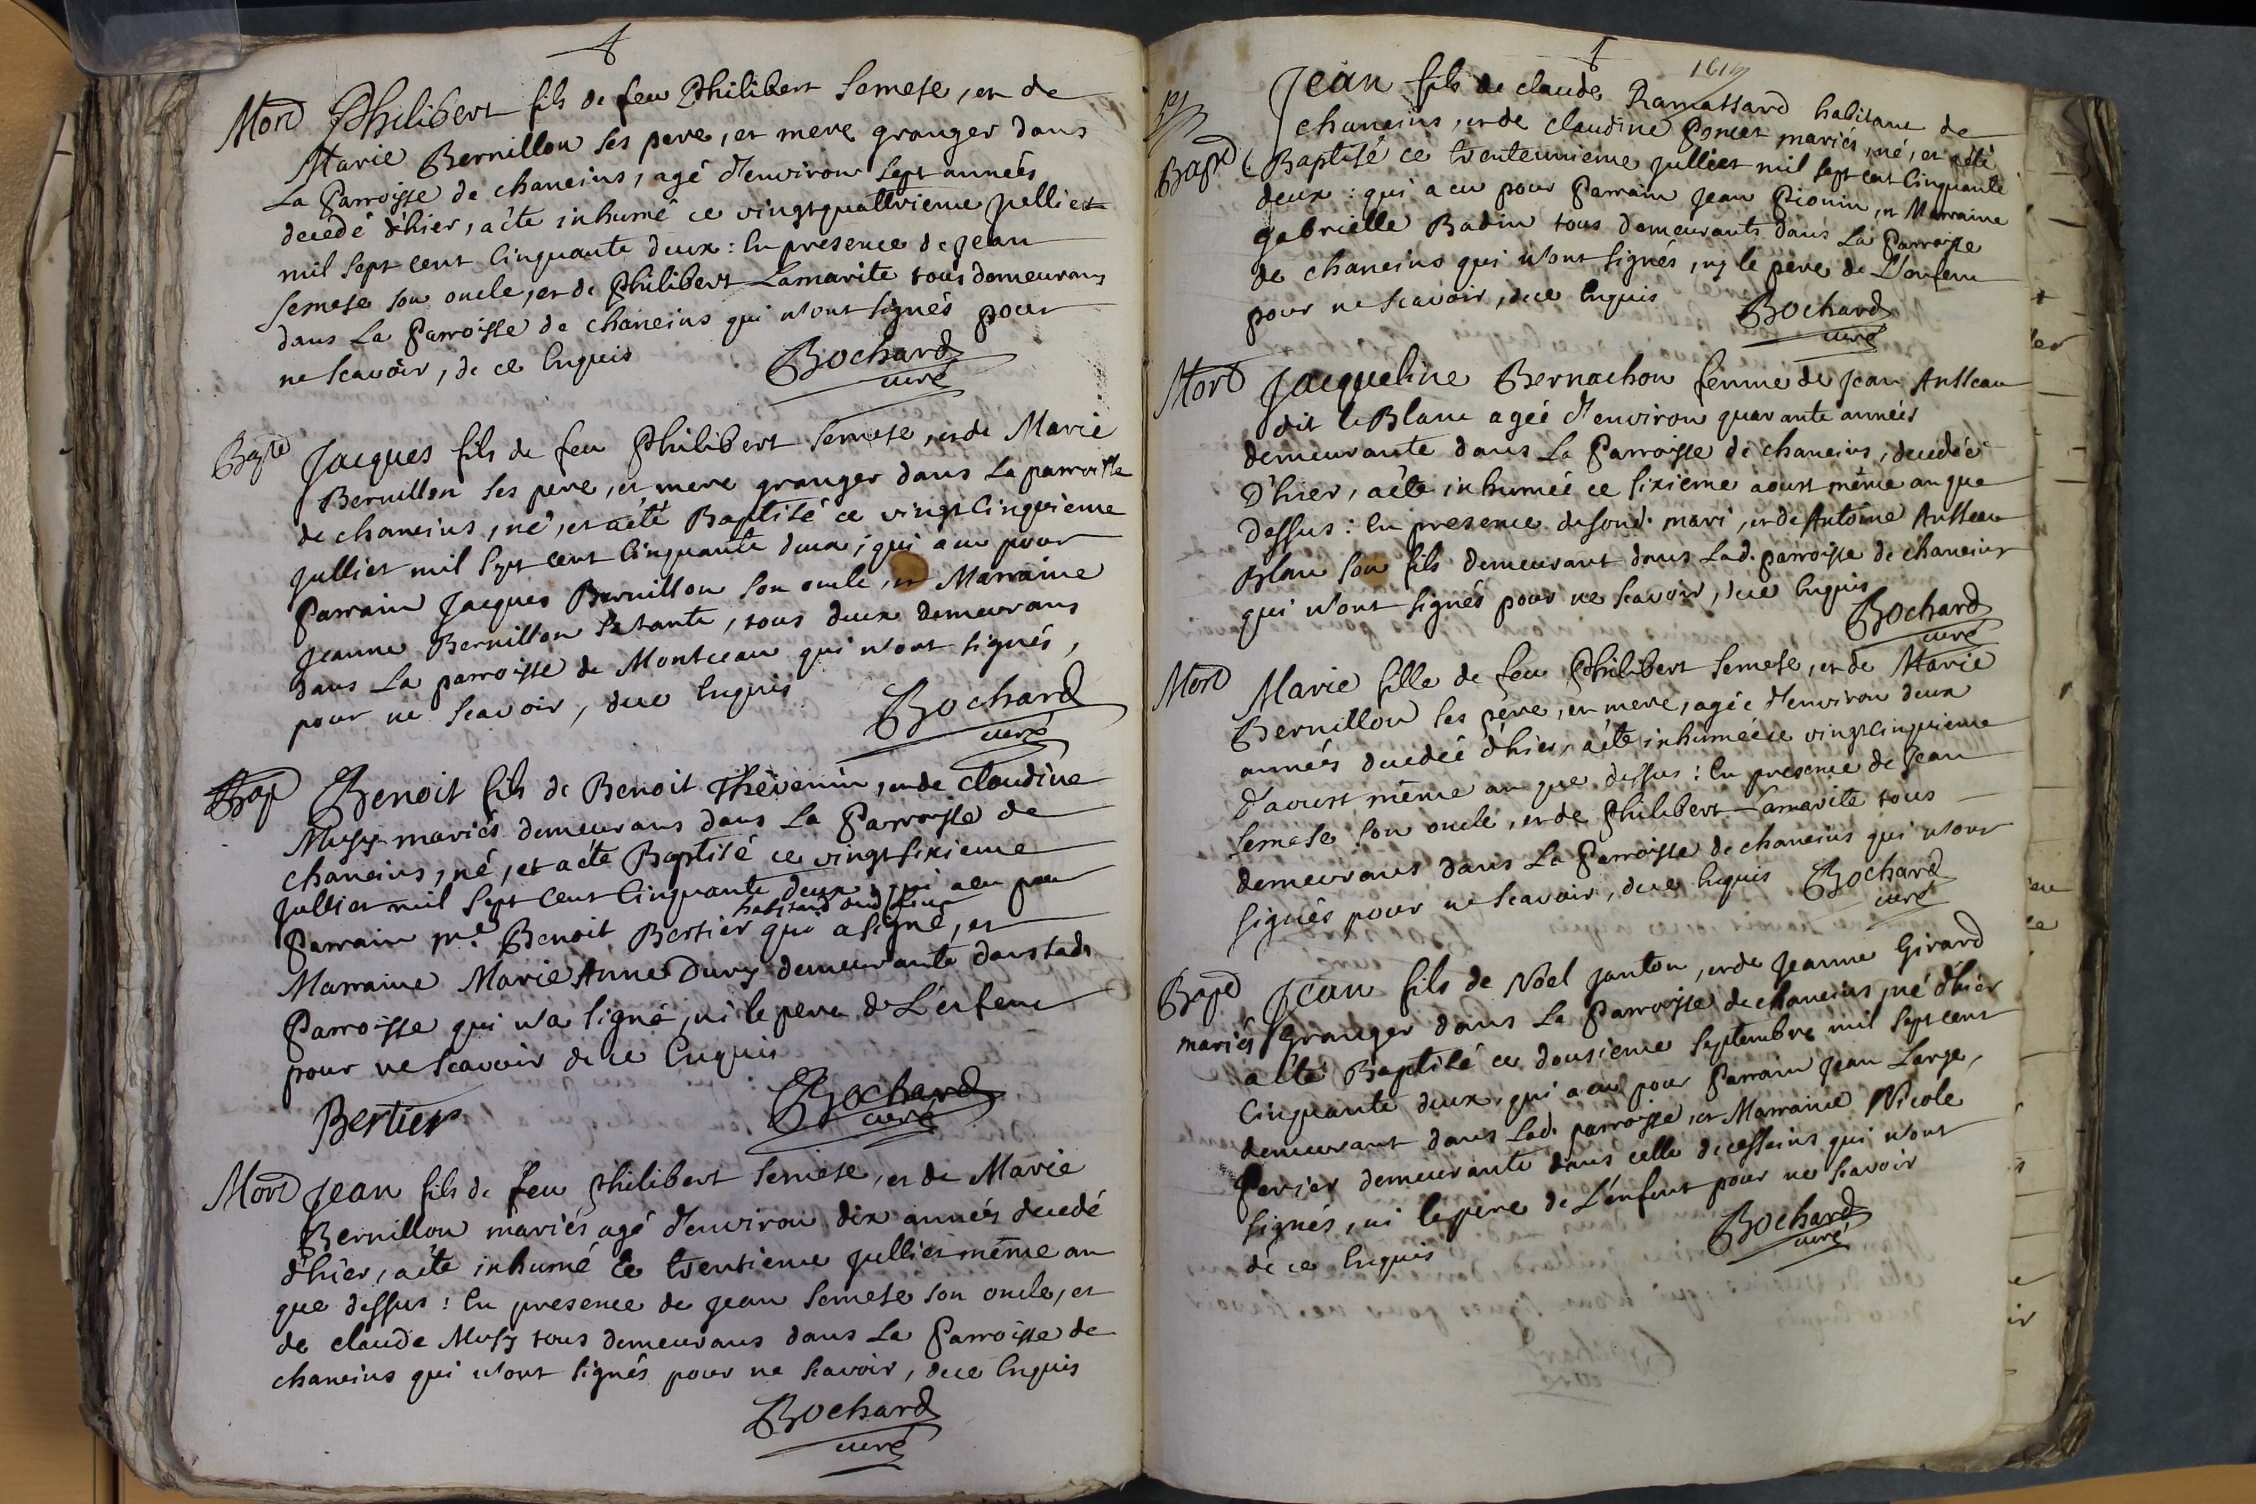 Mort Philibert fils de feu Philibert Semese, et de
Marie Bernillon ses pere, et mere granger dans
La Parroisse de chaneins, agé d'environ sept années
decedé d'hier, a été inhumé ce vingtquattrieme Jullier
mil sept cent Cinquante deux : En presence de Jean
Semese son oncle, et de Philibert Lamarite tous demeurans
dans La Parroisse de chaneins qui n'ont signés pour
ne scavoir, de ce Enquis
Bochard
curé
Bapte Jacques fils de feu Philibert Semese, et de Marie
Bernillon ses pere, et mere granger dans La parroisse
de chaneins, né, et a été Baptisé ce vingt Cinquieme
Jullier mil sept cent Cinquante deux ; qui a eu pour
Parrain Jacques Bernillon son oncle, et Marraine
Jeanne Bernillon sa tante, tous deux demeurans
dans La parroisse de Montceau qui n'ont signés,
pour ne scavoir, de ce Enquis
Bochard
curé
Bap Benoit fils de Benoit Thévenin, et de claudine
Musy mariés demeurans dans La Parroisse de
chaneins, né, et a été Baptisé ce vingt sixieme
Jullier mil sept cent Cinquante deux, qui a eu pour
habitant
Parrain me. Benoit Bertier qui a signé, et
Marraine Marie Anne Dury demeurante dans lad.
Parroisse qui n'a signé, ni le pere de L'enfent
pour ne scavoir de ce Enquis
Bertier
Bochard
curé
Mort Jean fils de feu Philibert Semese, et de Marie
Bernillon mariés agé d'environ dix années decedé
d'hier, a été inhumé Ce trentieme Jullier même an
que dessus : En presence de Jean Semese son oncle, et
de claude Musy tous demeurans dans La Parroisse de
chaneins qui n'ont signés pour ne scavoir, de ce Enquis
Bochard
curé
Jean fils de claude Ramassard habitant de
chaneins, et de claudine Poncet mariés, né, et a été
Bapt Baptisé ce trenteunieme Jullier mil sept cent Cinquante
deux : qui a eu pour Parrain Jean Pionin, et Marraine
gabrielle Badin tous demeurants dans La Parroisse
de chaneins qui n'ont signés, ny le pere de L'enfent
pour ne scavoir, de ce Enquis
Bochard
curé
Mort Jacqueline Bernachon femme de Jean Ansseau
dit le Blanc agée d'environ quarante années
demeurante dans La Parroisse de chaneins, decedée
D'hier, a été inhumée ce sixieme aoust même an que
dessus : En presence de sond. mari, et de Antoine Ansseau
Blanc son fils demeurant dans Lad. parroisse de chaneins
qui n'ont signés pour ne scavoir, de ce Enquis
Bochard
curé
Mort Marie fille de feu Philibert Semese, et de Marie
Bernillon ses pere, et mere, agée d'environ deux
années decedée d'hier, a été inhumée ce vingtcinquieme
D'aoust même an que dessus : En presence de Jean
Semese son oncle, et de Philibert Lamarite tous
demeurans dans La Parroisse de chaneins qui n'ont
signés pour ne scavoir, de ce Enquis
Bochard
curé
Bapt Jean fils de Noel Janton, et de Jeanne Girard
mariés granger dans La Parroisse de chaneins, né d'hier
a été Baptisé ce dousieme Septembre mil sept cent
Cinquante deux, qui a eu pour Parrain Jean Large,
demeurant dans Lad. parroisse, et Marraine Nicole
Perier demeurante dans celle de cesseins qui n'ont
signés, ni le pere de L'enfent pour ne scavoir
de ce Enquis
Bochard
curé